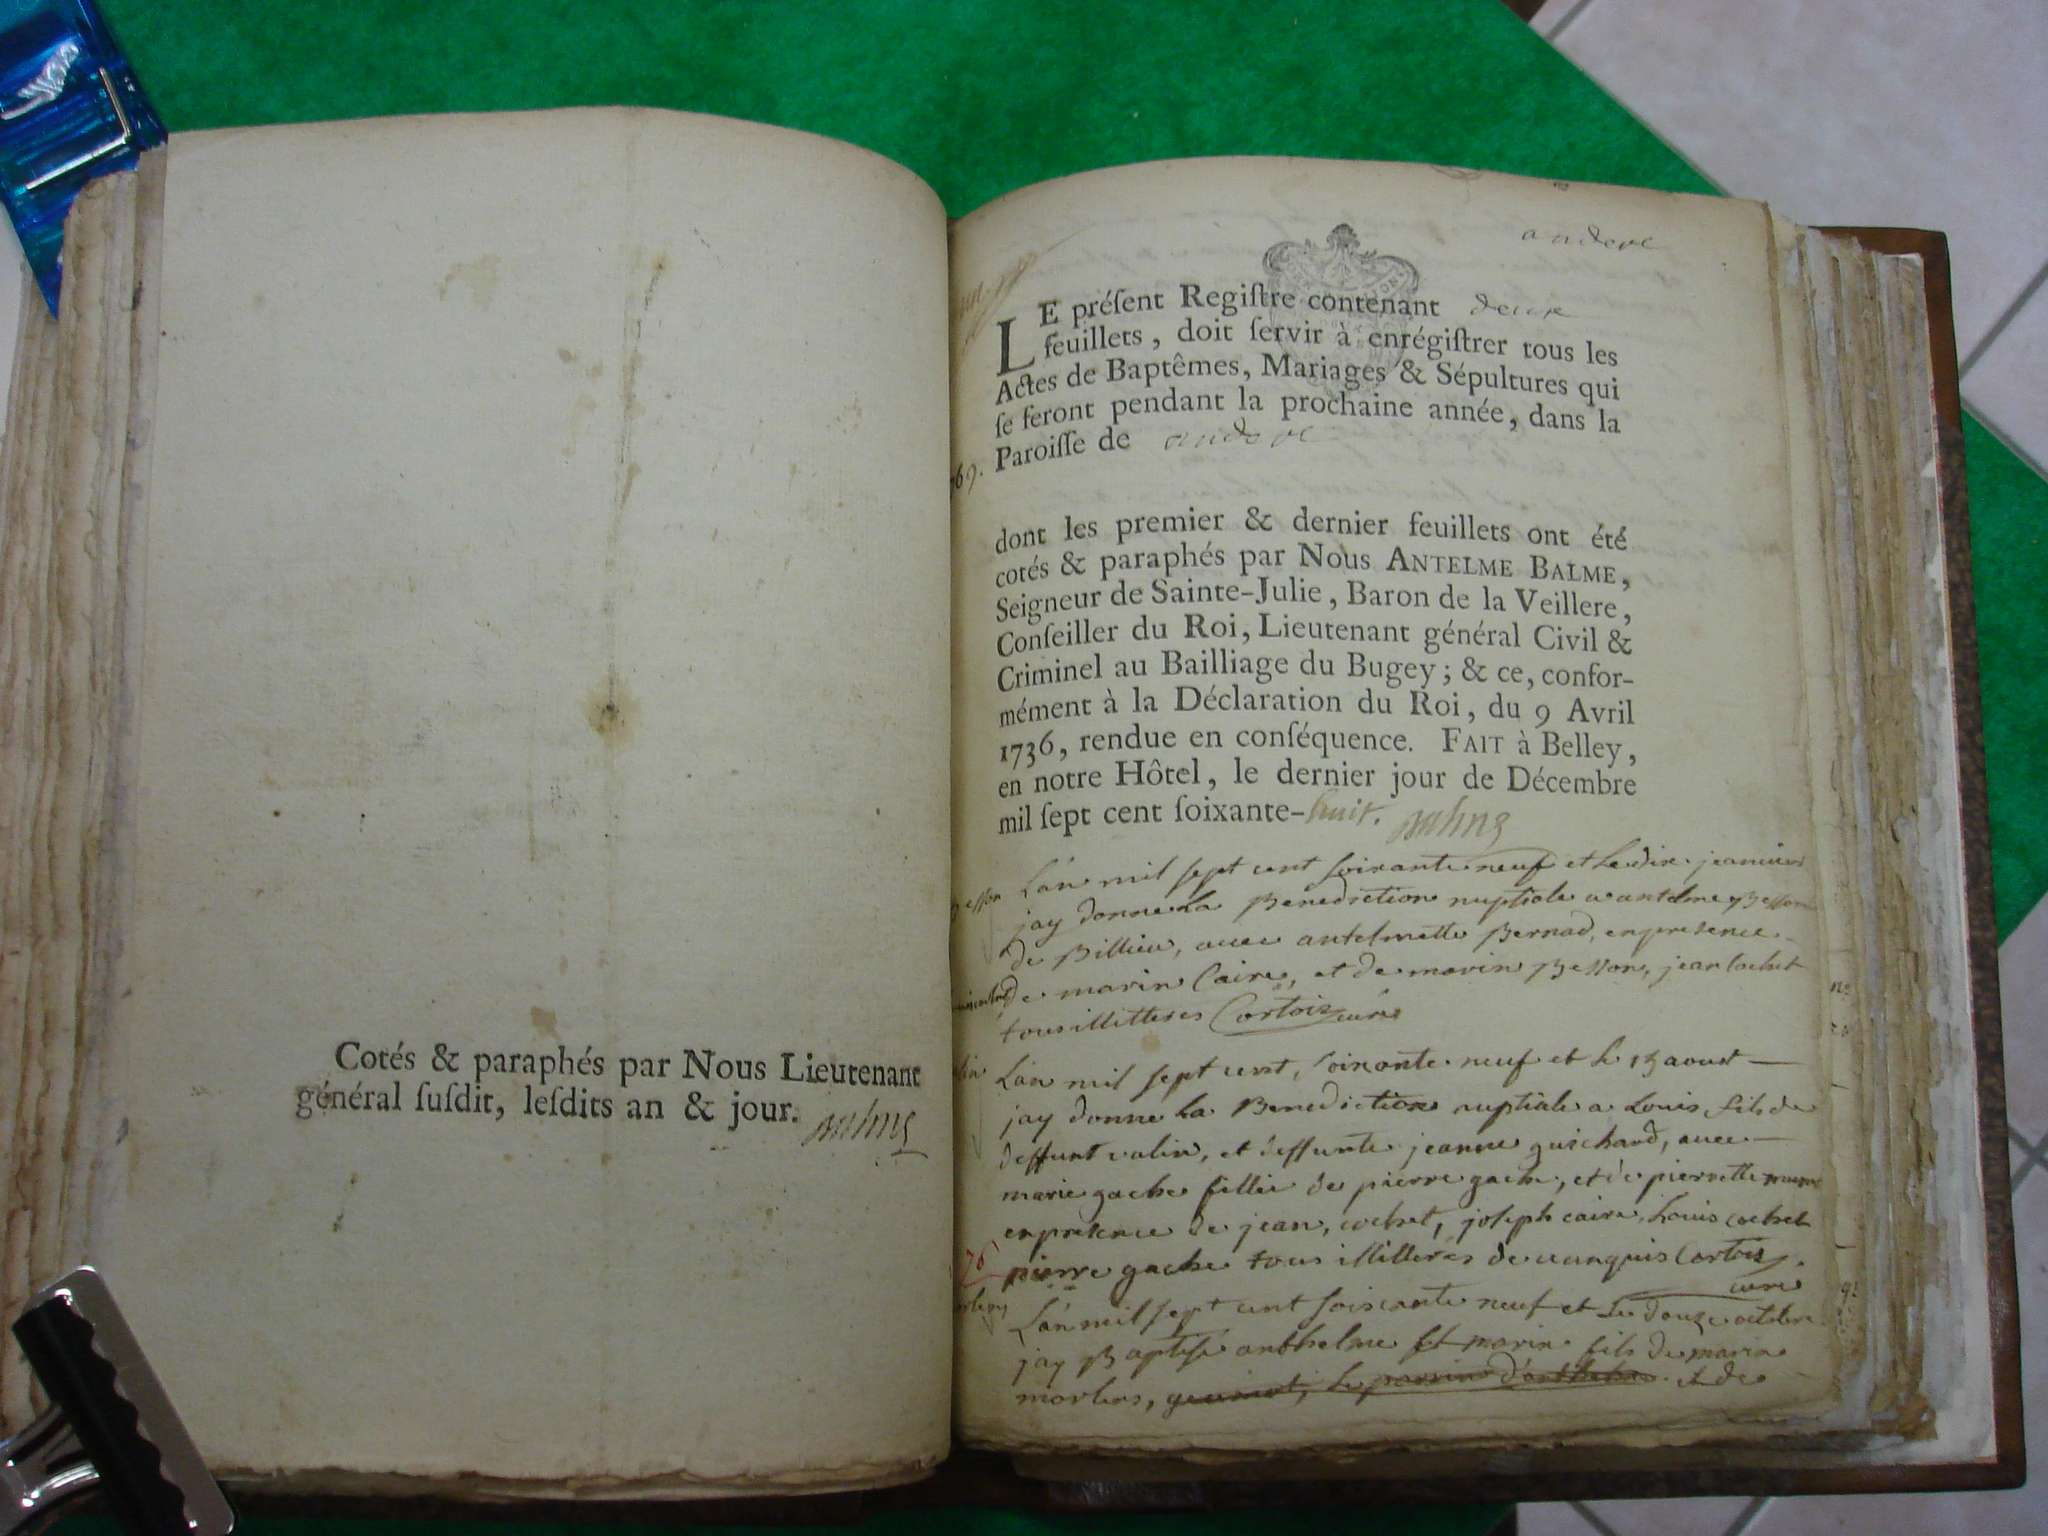 Cotés & paraphés par Nous Lieutenant
général ſuſdit, leſdits an & jour.
andert
LE préſent Regiſtre contenant deux
feuillets, doit ſervir à enrégiſtrer tous les
Actes de Baptêmes, Mariages & Sépultures qui
ſe feront pendant la prochaine année, dans la
Paroiſſe de andert
69.
dont les premier & dernier feuillets ont été
cotés & paraphés par Nous ANTELME BALME,
Seigneur de Sainte-Julie, Baron de la Veillere,
Conſeiller du Roi, Lieutenant général Civil &
Criminel au Bailliage du Bugey; & ce, confor-
mément à la Déclaration du Roi, du 9 Avril
1736, rendue en conſéquence. FAIT à Belley,
en notre Hôtel, le dernier jour de Décembre
mil ſept cent ſoixante-huit.
Lan mil sept cent soixante neuf et le dix jeanvier
jay donne la Benediction nuptiale a antelme Besson
de Billieu, avec antelmette Bernad, enpresence
de marin Caire, et de marin Besson, jean cochet
tous illitteres Cortois curé
Lan mil sept cent, soixante neuf et le 13 aoust
jay donne la Benediction nuptiale a Louis fils de
deffunt valin, et deffunte jeanne guichard, avec
marie gache fille de pierre gache, et de pierrette
enpresence de jean, cochet, joseph caire, Louis cochet
pierre gache tous illitterés de Cortois
curé
Lan mil sept cent soixante neuf et le douze octobre
jay Baptisé anthelme et marin fils de marin
et de